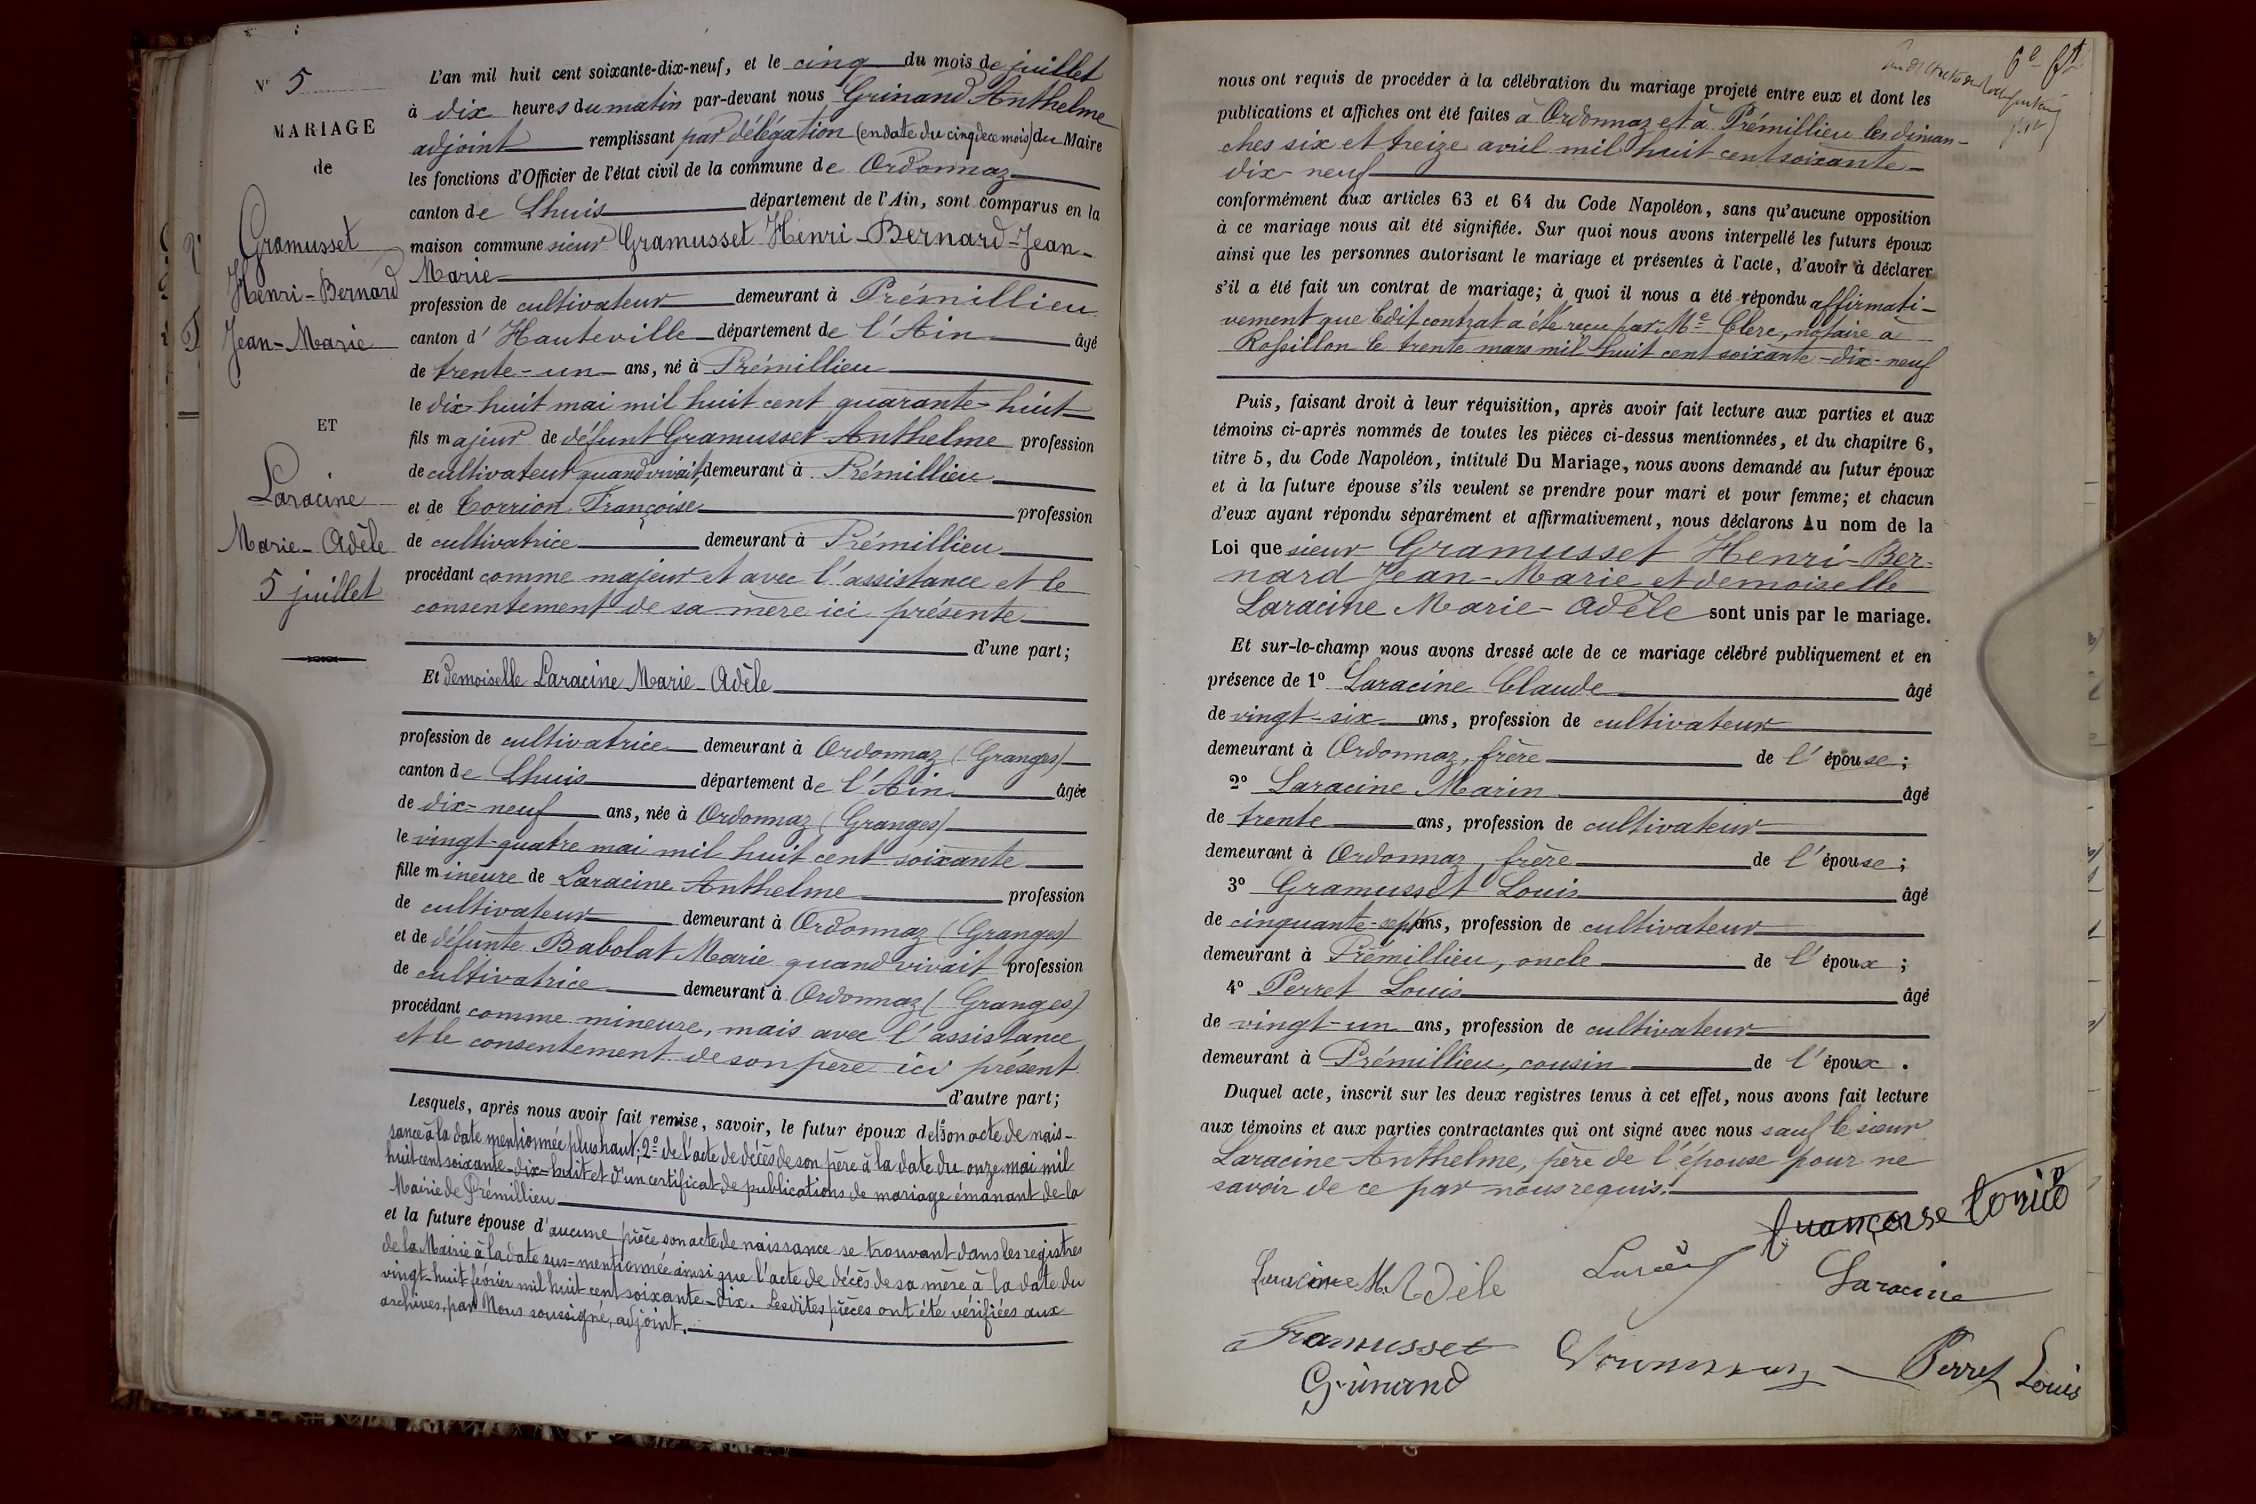 N° 5
MARIAGE
de
Gramusset
Henri-Bernard
Jean-Marie
ET
Laracine
Marie-Adèle
5 juillet
L'an mil huit cent soixante-dix-neuf, et le cinq du mois de juillet
à dix heures du matin par-devant nous Grinand Anthelme
adjoint remplissant par délégation (en date du cinq de ce mois) du Maire
les fonctions d'Officier de l'état civil de la commune de Ordonnaz
canton de Lhuis département de l'Ain, sont comparus en la
maison commune sieur Gramusset Henri-Bernard-Jean-
Marie
profession de cultivateur demeurant à Prémillieu
canton d'Hauteville département de l'Ain âgé
de trente-un ans, né à Prémillieu
le dix-huit mai mil huit cent quarante-huit
fils majeur de défunt Gramusset Anthelme profession
de cultivateur quand vivait, demeurant à Prémillieu
et de Corrion Françoise profession
de cultivatrice demeurant à Prémillieu
procédant comme majeur et avec l'assistance et le
consentement de sa mère ici présente
d'une part;
Et Demoiselle Laracine Marie-Adèle
profession de cultivatrice demeurant à Ordonnaz (Granges)
canton de Lhuis département de l'Ain âgée
de dix-neuf ans, née à Ordonnaz (Granges)
le vingt-quatre mai mil huit cent soixante
fille mineure de Laracine Anthelme profession
de cultivateur demeurant à Ordonnaz (Granges)
et de défunte Babolat Marie quand vivait profession
de cultivatrice demeurant à Ordonnaz (Granges)
procédant comme mineure, mais avec l'assistance
et le consentement de son père ici présent
d'autre part;
Lesquels, après nous avoir fait remise, savoir, le futur époux de 1° son acte de nais-
sance à la date mentionnée plus haut; 2° de l'acte de décès de son père à la date du onze mai mil
huit cent soixante-dix-huit et d'un certificat de publications de mariage émanant de la
Mairie de Prémillieu
et la future épouse d'aucune pièce son acte de naissance se trouvant dans les registres
de la Mairie à la date sus-mentionnée ainsi que l'acte de décès de sa mère à la date du
vingt-huit février mil huit cent soixante-dix. Lesdites pièces ont été vérifiées aux
archives, par Nous soussigné, adjoint.
nous ont requis de procéder à la célébration du mariage projeté entre eux et dont les
publications et affiches ont été faites à Ordonnaz et à Prémillieu les diman-
ches six et treize avril mil huit cent soixante-
dix-neuf
conformément aux articles 63 et 64 du Code Napoléon, sans qu'aucune opposition
à ce mariage nous ait été signifiée. Sur quoi nous avons interpellé les futurs époux
ainsi que les personnes autorisant le mariage et présentes à l'acte, d'avoir à déclarer
s'il a été fait un contrat de mariage; à quoi il nous a été répondu affirmati-
vement que ledit contrat a été reçu par Me Clerc, notaire à
Rossillon le trente mars mil huit cent soixante-dix-neuf
Puis, faisant droit à leur réquisition, après avoir fait lecture aux parties et aux
témoins ci-après nommés de toutes les pièces ci-dessus mentionnées, et du chapitre 6,
titre 5, du Code Napoléon, intitulé Du Mariage, nous avons demandé au futur époux
et à la future épouse s'ils veulent se prendre pour mari et pour femme; et chacun
d'eux ayant répondu séparément et affirmativement, nous déclarons Au nom de la
Loi que sieur Gramusset Henri-Ber-
nard Jean-Marie et demoiselle
Laracine Marie-Adèle sont unis par le mariage.
Et sur-le-champ nous avons dressé acte de ce mariage célébré publiquement et en
présence de 1° Laracine Claude âgé
de vingt-six ans, profession de cultivateur
demeurant à Ordonnaz, frère de l'épouse;
2° Laracine Marin âgé
de trente ans, profession de cultivateur
demeurant à Ordonnaz, frère de l'épouse;
3° Gramusset Louis âgé
de cinquante-sept ans, profession de cultivateur
demeurant à Prémillieu, oncle de l'époux;
4° Perret Louis âgé
de vingt-un ans, profession de cultivateur
demeurant à Prémillieu, cousin de l'époux.
Duquel acte, inscrit sur les deux registres tenus à cet effet, nous avons fait lecture
aux témoins et aux parties contractantes qui ont signé avec nous sauf le sieur
Laracine Anthelme, père de l'épouse pour ne
savoir de ce par nous requis.
Laracine M. Adèle
Laracine
Gramusset
Perret Louis
Grinand